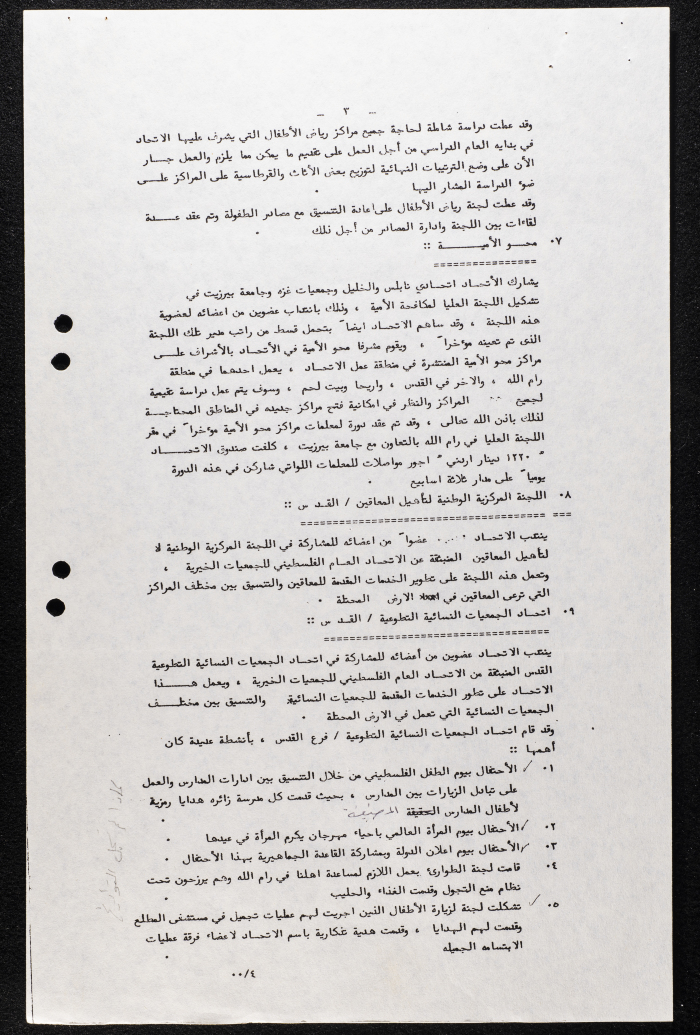 - ٣ -
وقد عملت دراسة شاملة لحاجة جميع مراكز رياض الأطفال التي يشرف عليها الاتحاد
في بدايه العام الدراسي من أجل العمل على تقديم ما يمكن مما يلزم والعمل جـــار
الأن على وضع الترتيبات النهائية لتوزيع بعض الأثاث والقرطاسية على المراكز علـــى
ضوء الدراسة المشار اليها .
وقد عملت لجنة رياض الأطفال على اعادة التنسيق مع مصادر الطفولة وتم عقد عـــدة
لقاءات بين اللجنة وادارة المصادر من أجل ذلك .
٠٧ محــو الأميـــــــة ::
================
يشارك الأتحاد اتحادي نابلس والخليل وجمعيات غزه وجامعة بيرزيت في
تشكيل اللجنة العليا لمكافحة الأمية ، وذلك بانتداب عضوين من اعضائه لعضوية
هذه اللجنة ، وقد ساهم الاتحاد ايضا" بتحمل قسط من راتب مدير تلك اللجنة
الذى تم تعيينه مؤخرا" ، ويقوم مشرفا محو الأمية في الأتحاد بالأشراف علـــى
مراكز محو الأمية المنتشرة في منطقة عمل الاتحاد ، يعمل احدهما في منطقة
رام الله ، والاخر في القدس ، واريحا وبيت لحم ، وسوف يتم عمل دراسة تقييمية
لجميع المراكز والنظر في امكانية فتح مراكز جديده في المناطق المحتاجـــة
لذلك باذن الله تعالى ، وقد تم عقد دورة لمعلمات مراكز محو الأمية مؤخرا" في مقر
اللجنة العليا في رام الله بالتعاون مع جامعة بيرزيت ، كلفت صندوق الاتحـــــاد
" ١٢٢٠ دينار اردني " اجور مواصلات للمعلمات اللواتي شاركن في هذه الدورة
يوميا" على مدار ثلاثة اسابيع .
٠٨ اللجنة المركزية الوطنية لتأهيل المعاقين / القـد س ::
=== ======================================
ينتدب الاتحاد .... عضوا" من اعضائه للمشاركة في اللجنة المركزية الوطنية لا
لتأهيل المعاقين المنبثقة عن الاتحاد العـام الفلسطيني للجمعيات الخيرية ،
وتعمل هذه اللجنة على تطوير الخدمات المقدمة للمعاقين والتنسيق بين مختلف المراكز
التي ترعى المعاقين في الارض المحتلة .
٠٩ اتحـاد الجمعيات النسائية التطوعية / القـد س ::
===================================
ينتدب الاتحاد عضوين من أعضائه للمشاركة في اتحـاد الجمعيات النسائية التطوعية
القدس المنبثقة من الاتحاد العام الفلسطيني للجمعيات الخيرية ، ويعمل هـــــذا
الاتحاد على تطور الخدمات المقدمة للجمعيات النسائية والتنسيق بين مختلـــف
الجمعيات النسائية التي تعمل في الارض المحتلة .
وقد قام اتحاد الجمعيات النسائية التطوعية / فرع القدس ، بأنشطة عديدة كان
أهمها ::
٠١ الأحتفال بيوم الطفل الفلسطيني من خلال التنسيق بين ادارات المدارس والعمل
على تبادل الزيارات بين المدارس ، بحيث قدمت كل مدرسة زائره هدايا رمزية
لأطفال المدارس الحقيقة .
٠٢ الأحتفال بيوم المرأة العالمي باحياء مهرجان يكرم المرأة في عيدها .
٠٣ الأحتفال بيوم اعلان الدولة وبمشاركة القاعدة الجماهيرية بهذا الأحتفال .
٠٤ قامت لجنة الطوارئ بعمل اللازم لمساعدة اهلنا في رام الله وهم يرزحون تحت
نظام منع التجول وقدمت الغذاء والحليب .
٠٥ تشكلت لجنة لزيارة الأطفال الذين اجريت لهم عمليات تجميل في مستشفى المطلع
وقدمت لهم الهدايا ، وقدمت هدية تذكارية باسم الاتحـاد لاعضاء فرقة عمليات
الابتسامه الجميله .
٠٠/٤